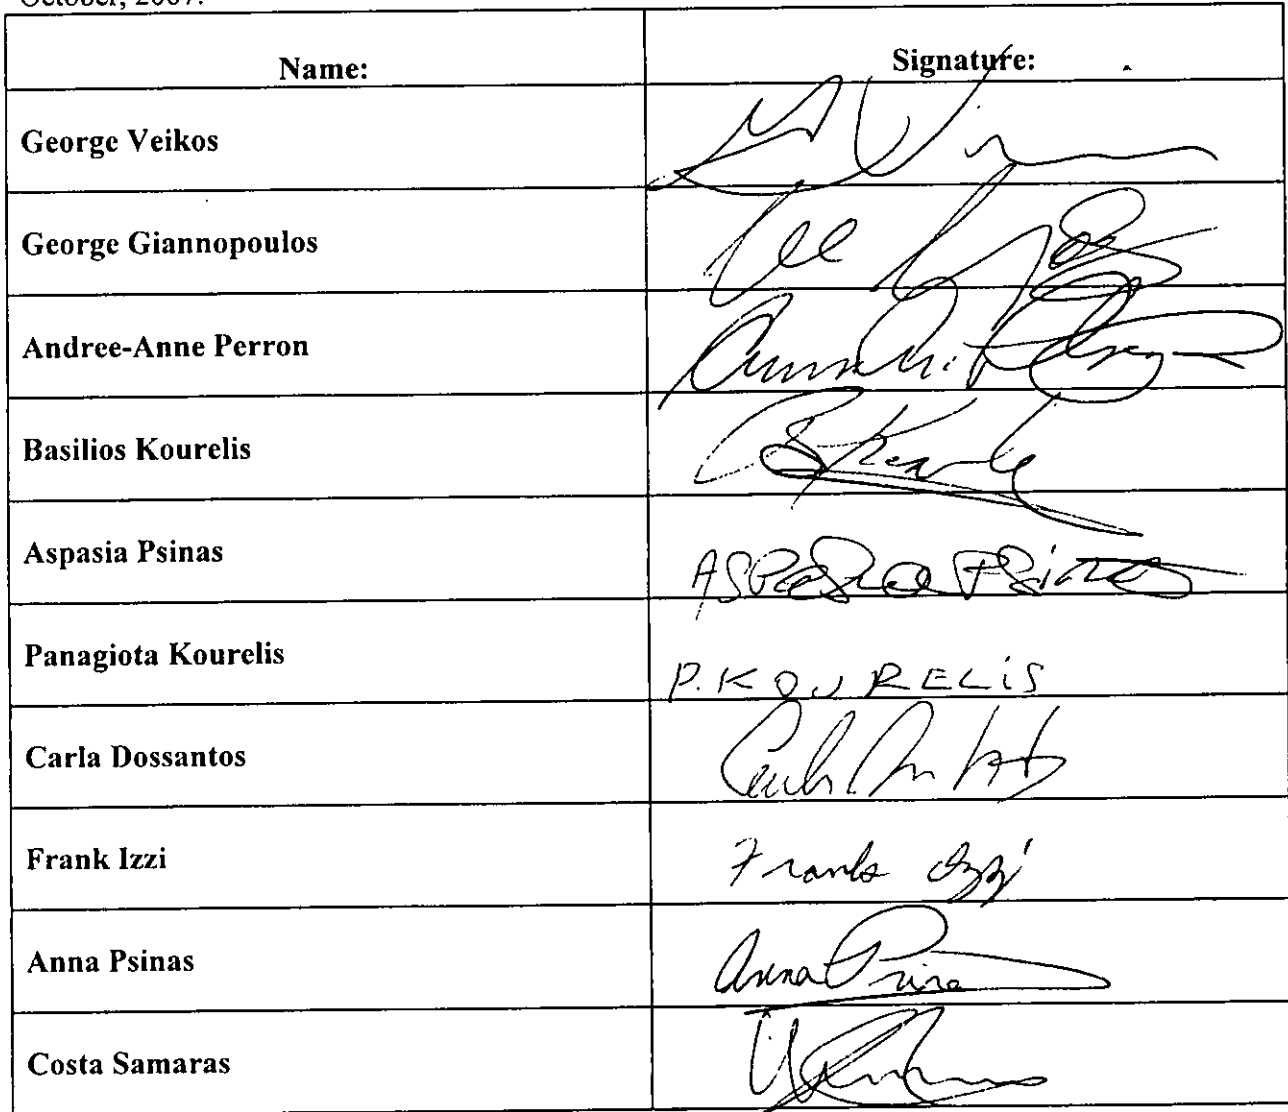 October, 2007.
Name: Signature:
George Veikos
George Giannopoulos
Andree-Anne Perron
Basilios Kourelis
Aspasia Psinas Aspasia Psinas
Panagiota Kourelis P. KOURELIS
Carla Dossantos
Frank Izzi Frank Izzi
Anna Psinas Anna Psinas
Costa Samaras